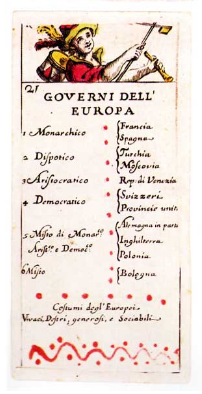 21
GOVERNI DELL'
EUROPA
1 Monarchico {Francia
Spagna
2 Dispotico {Turchia
Moscovia
3 Aristocratico {Rep. di Venezia
4 Democratico {Svizzeri
Provincie unite
5 Misto di Monar.º {Alemagna in parte
Aris.º e Democ.º Inghilterra
Polonia
6 Misto {Bologna
Costumi degl'Europei
Vivaci, Destri, generosi, e Sociabili